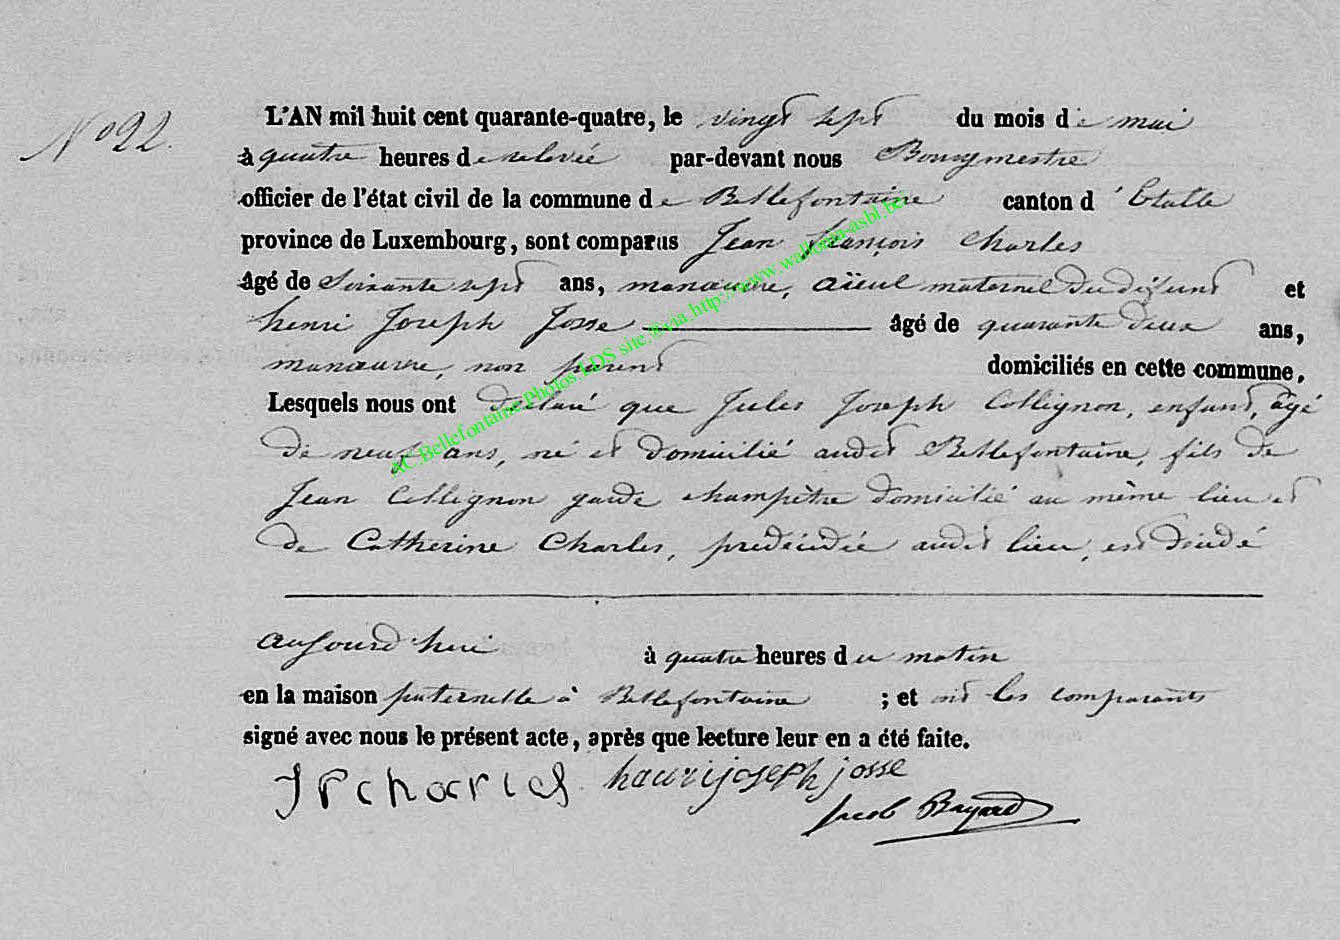 N° 22.
L'AN mil huit cent quarante-quatre, le vingt sept du mois de mai
à quatre heures de relevée par-devant nous Bourgmestre
officier de l'état civil de la commune de Bellefontaine canton d'Etalle
province de Luxembourg, sont comparus Jean françois Charles
âgé de Soixante sept ans, manœuvre, aïeul maternel du défunt et
henri Joseph Josse âgé de quarante deux ans,
manœuvre, non parent domiciliés en cette commune,
Lesquels nous ont déclaré que Jules Joseph Collignon, enfant, âgé
de neuf ans, né et domicilié audit Bellefontaine, fils de
Jean Collignon garde champêtre domicilié au même lieu et
de Catherine Charles, prédécédée audit lieu, est décédé
aujourd'hui à quatre heures du matin
en la maison paternelle à Bellefontaine ; et ont les comparants
signé avec nous le présent acte, après que lecture leur en a été faite.
JFcharles haurijoseph josse
Jacob Bayard
AC.Bellefontaine.Photos.LDS site.®via.http://www.wallonia-asbl.be/